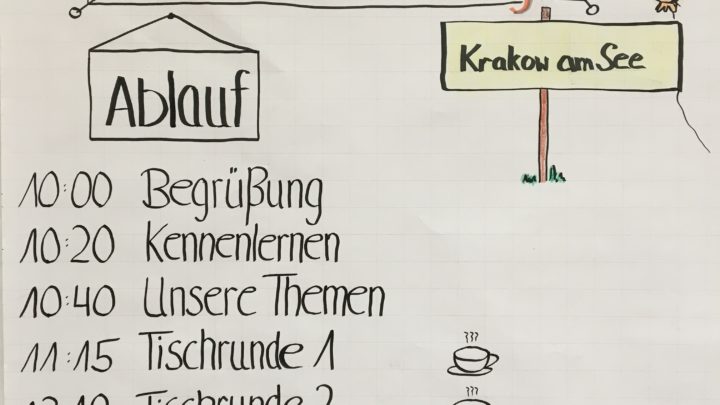 Ablauf
Krakow am See
10:00 Begrüßung
10:20 Kennenlernen
10:40 Unsere Themen
11:15 Tischrunde 1
Tischrunde 2